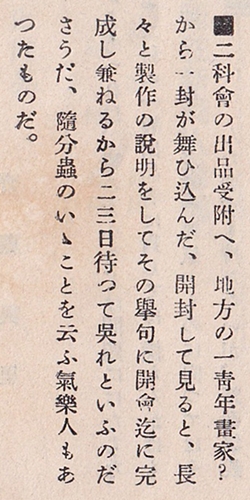 ■二科會の出品受附へ、地方の一靑年畫家?
から一封が舞ひ込んだ、開封して見ると、長
々と製作の說明をしてその擧句に開會迄に完
成し兼ねるから二三日待つて吳れといふのだ
さうだ、隨分蟲のいゝことを云ふ氣樂人もあ
つたものだ。